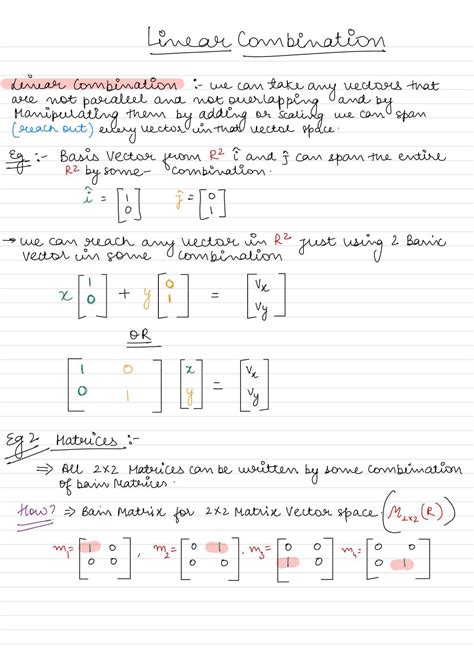 Linear Combination
Linear Combination :- we can take any vectors that
are not parallel and not overlapping and by
Manipulating them by adding or scaling we can span
(reach out) every vector in that vector space.
Eg :- Basis Vector from R² î and ĵ can span the entire
R² by some combination.
î = [1 0] ĵ = [0 1]
→ we can reach any vector in R² just using 2 Basis
vector in some combination
x [1 0] + y [0 1] = [Vx Vy]
OR
[1 0
0 1] [x y] = [Vx Vy]
Eg 2 Matrices :-
⇒ All 2x2 Matrices can be written by some combination
of basis Matrices.
How? ⇒ Basis Matrix for 2x2 Matrix Vector space (M2x2(R))
m1 = [1 0 0 0], m2 = [0 1 0 0], m3 = [0 0 1 0] m4 = [0 0 0 1]